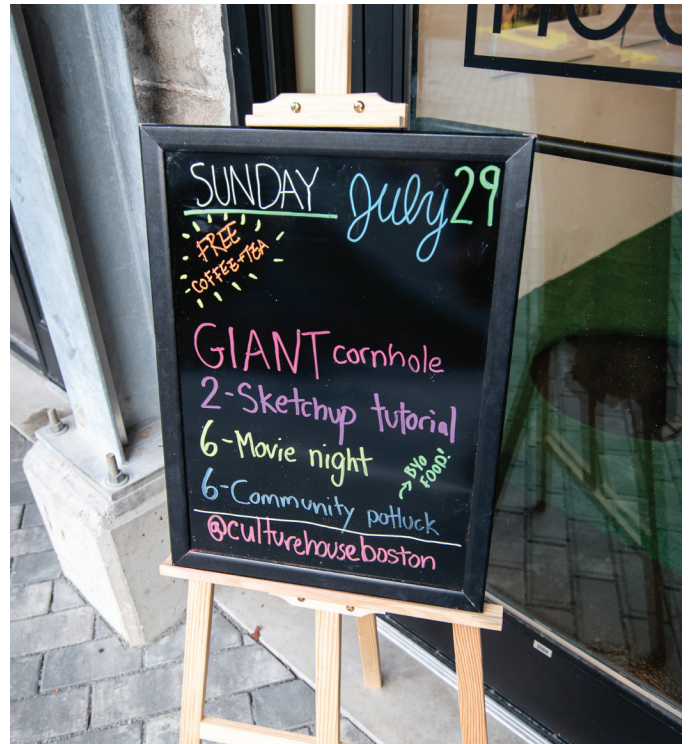 HOU
SUNDAY July 29
FREE
COFFEE+TEA
GIANT cornhole
2-Sketchup tutorial
6-Movie night
→ BYO
FOOD!
6-Community potluck
@culturehouseboston